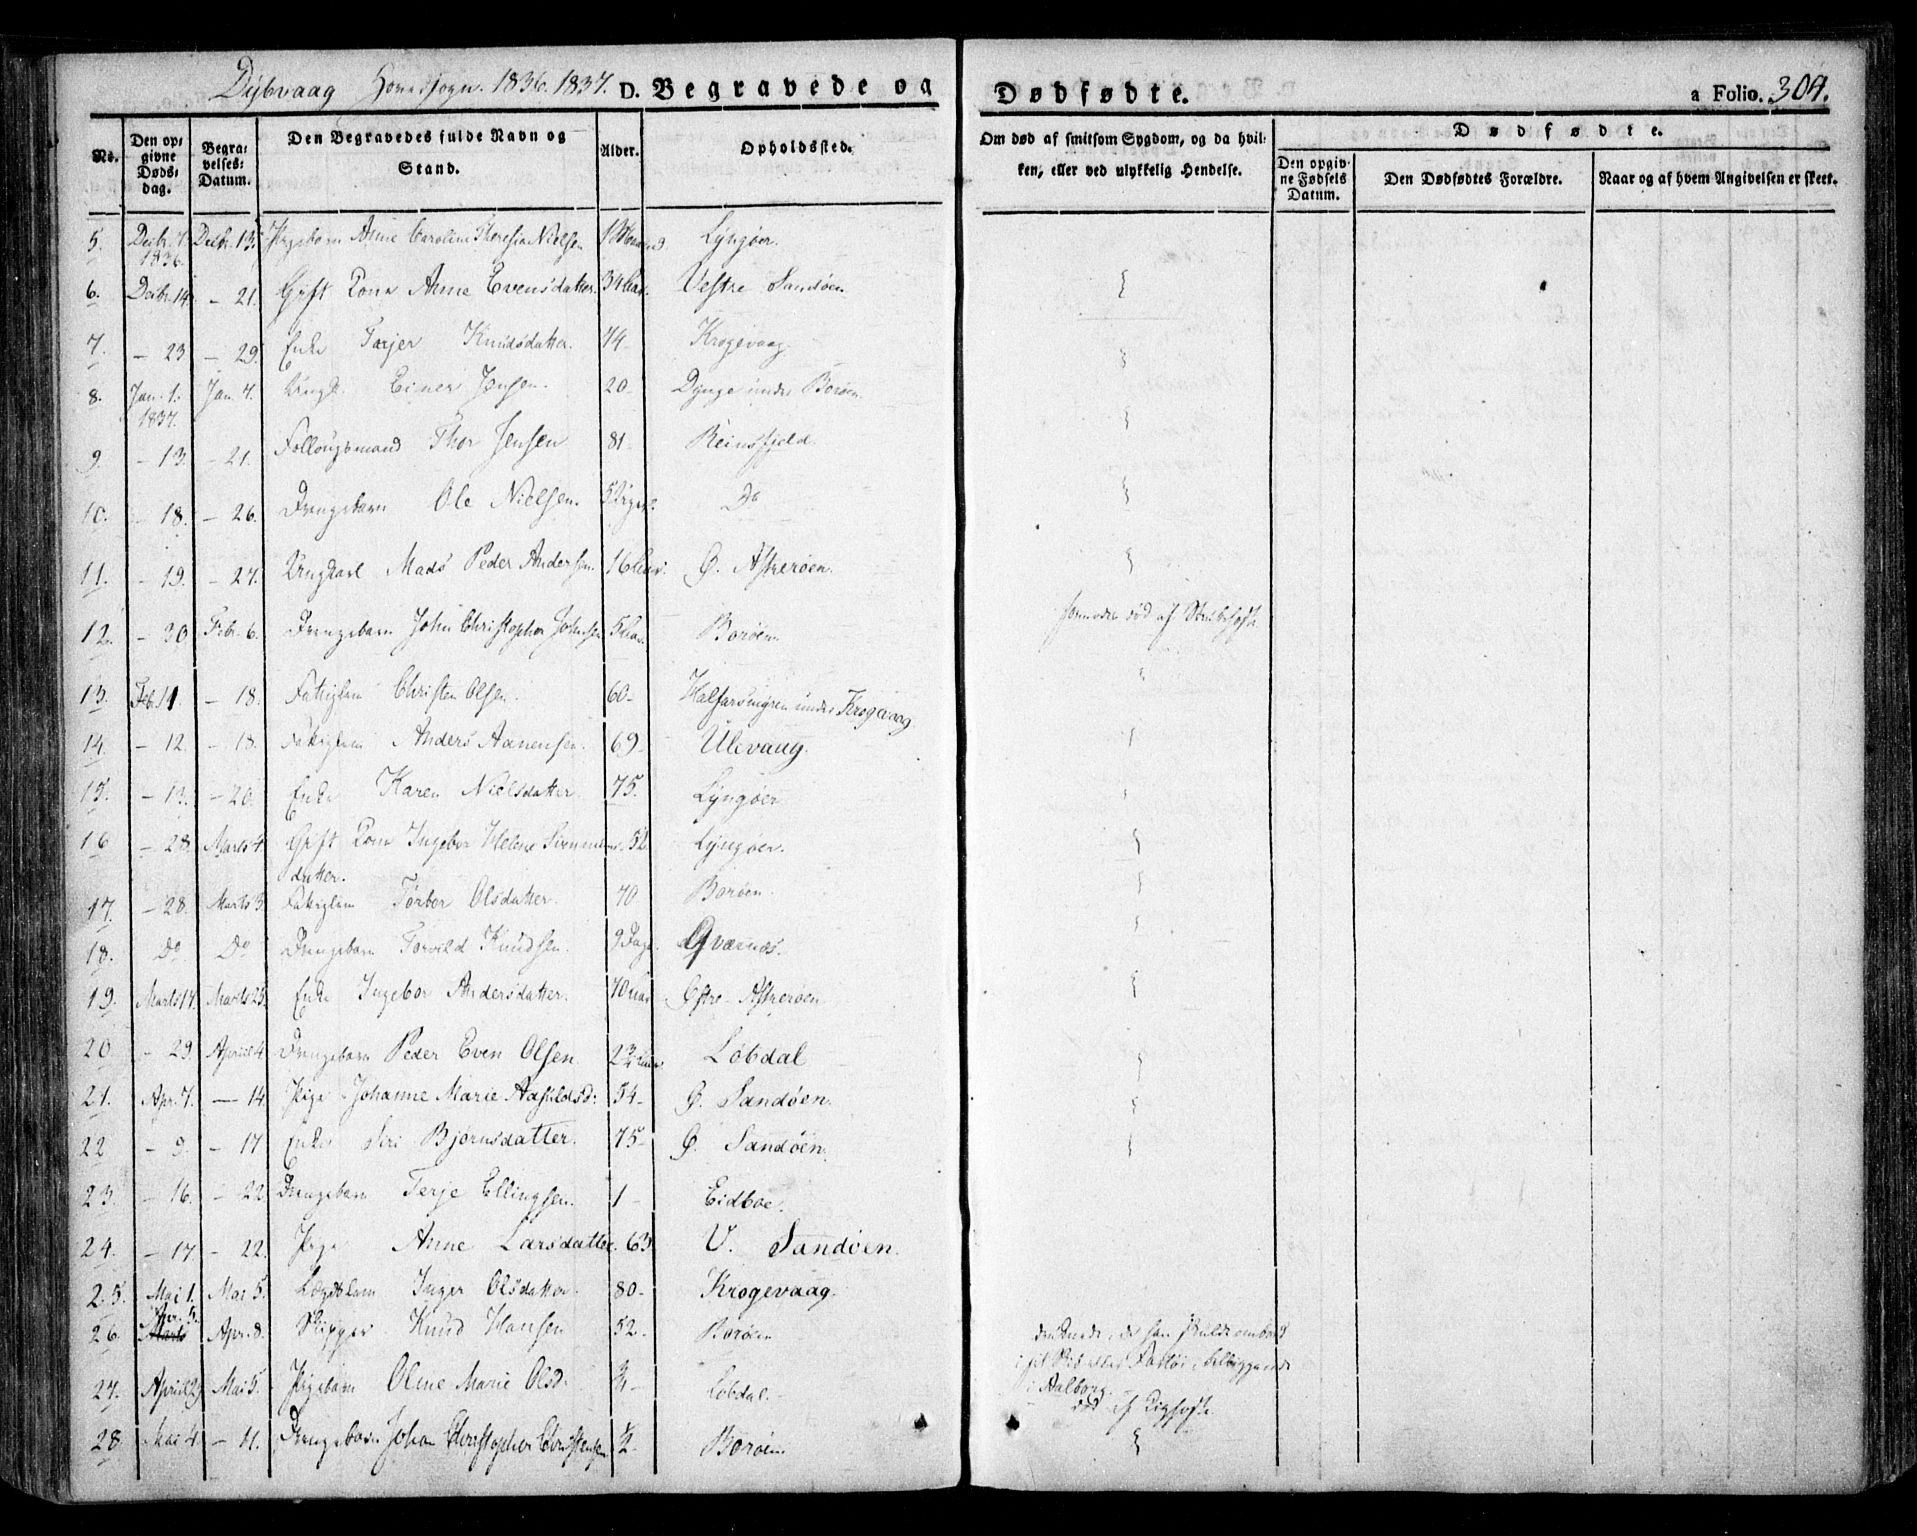 Dybvaag Hovedsogn. 1836. 1837. D. Begravede og Dødfødte. a Folio. 304.
No.
Den opgivne Dødsdag.
Begravelses-Datum.
Den Begravedes fulde Navn og Stand.
Alder.
Opholdssted.
Om død af smitsom Sygdom, og da hvilken, eller ved ulykkelig Hendelse.
Dødfødte.
Den opgivne Fødsels Datum.
Den Dødfødtes Forældre.
Naar og af hvem Angivelsen er skeet.
5. Decbr. 7. 1836. Decbr. 13. Pigebarn Anne Caroline Theresia Nielsen Lyngøer.
6. Decbr. 14. – 21. Gift Kone Anne Evensdatter. 34 Aar. Vestre Sandøen
7. – 23 – 29. Enke Tarjer Knudsdatter. 74 Krogevaag
8. Jan. 1. 1837. Jan. 7. Ungk. Einer Jensen. 20. Dynge under Borøen
9. – 13. – 21. Follougsmand Thor Jensen 81. Reinsfjeld.
10. – 18. – 26. Drengebarn Ole Nielsen. Do
11. – 19. – 27. Ungkarl Mads Peder Andersen. 16 Aar. Ø. Askerøen.
12. – 30 Febr. 6. Drengebarn John Christopher Johnsen 5 Aar. Borøen formodes død af Strubehoste
13. Feb. 11 – 18. Fattiglem Christen Olsen. 60 – under Krogevaag
14. – 12. – 18. Fattiglem Anders Aanensen. 69 – Ulevaag.
15. – 13. – 20. Enke Karen Nielsdatter. 75. Lyngøer
16 – 28. Marts 4. Gift Kone Ingebor Helene datter. 52. Lyngøer.
17. – 28. Marts 3. Fattiglem Tørbor Olsdatter. 70 Borøen.
18. Do Do Drengebarn Torvild Knudsen. 9 Dage. Qværnæs.
19. Marts 17. Marts 25. Enke Ingebor Andersdatter. 70 Aar Østre Askerøen
20 – 29. Apriil 4. Drengebarn Peder Even Olsen Løbdal
21. Apr. 7. – 14. Pige Johanne Marie Aasuldsd: 54 – Ø. Sandøen.
22 – 9. – 17 Enke Siri Bjørnsdatter. 75 – Ø. Sandøen.
23. – 16. – 22 Drengebarn Terje Ellingsen. 1 – Eidboe.
24. – 17 – 22. Pige Anne Larsdatter. 63 V. Sandøen.
25. Mai 1. Mai 5. Lægdslem Inger Olsdatter 80 – Krogevaag.
26. Apr. 5. Marts Apr. 8. Skipper Knud Hansen 52. Borøen druknede, da han skulde ombord i sit i Aalborg.
27. Apriil 29 Mai 5. Pigebarn Oline Marie Olsd. Løbdal. død af Kighoste
28. Mai 4. – 11. Drengebarn Johan Christopher Christensen 1/2 Borøen